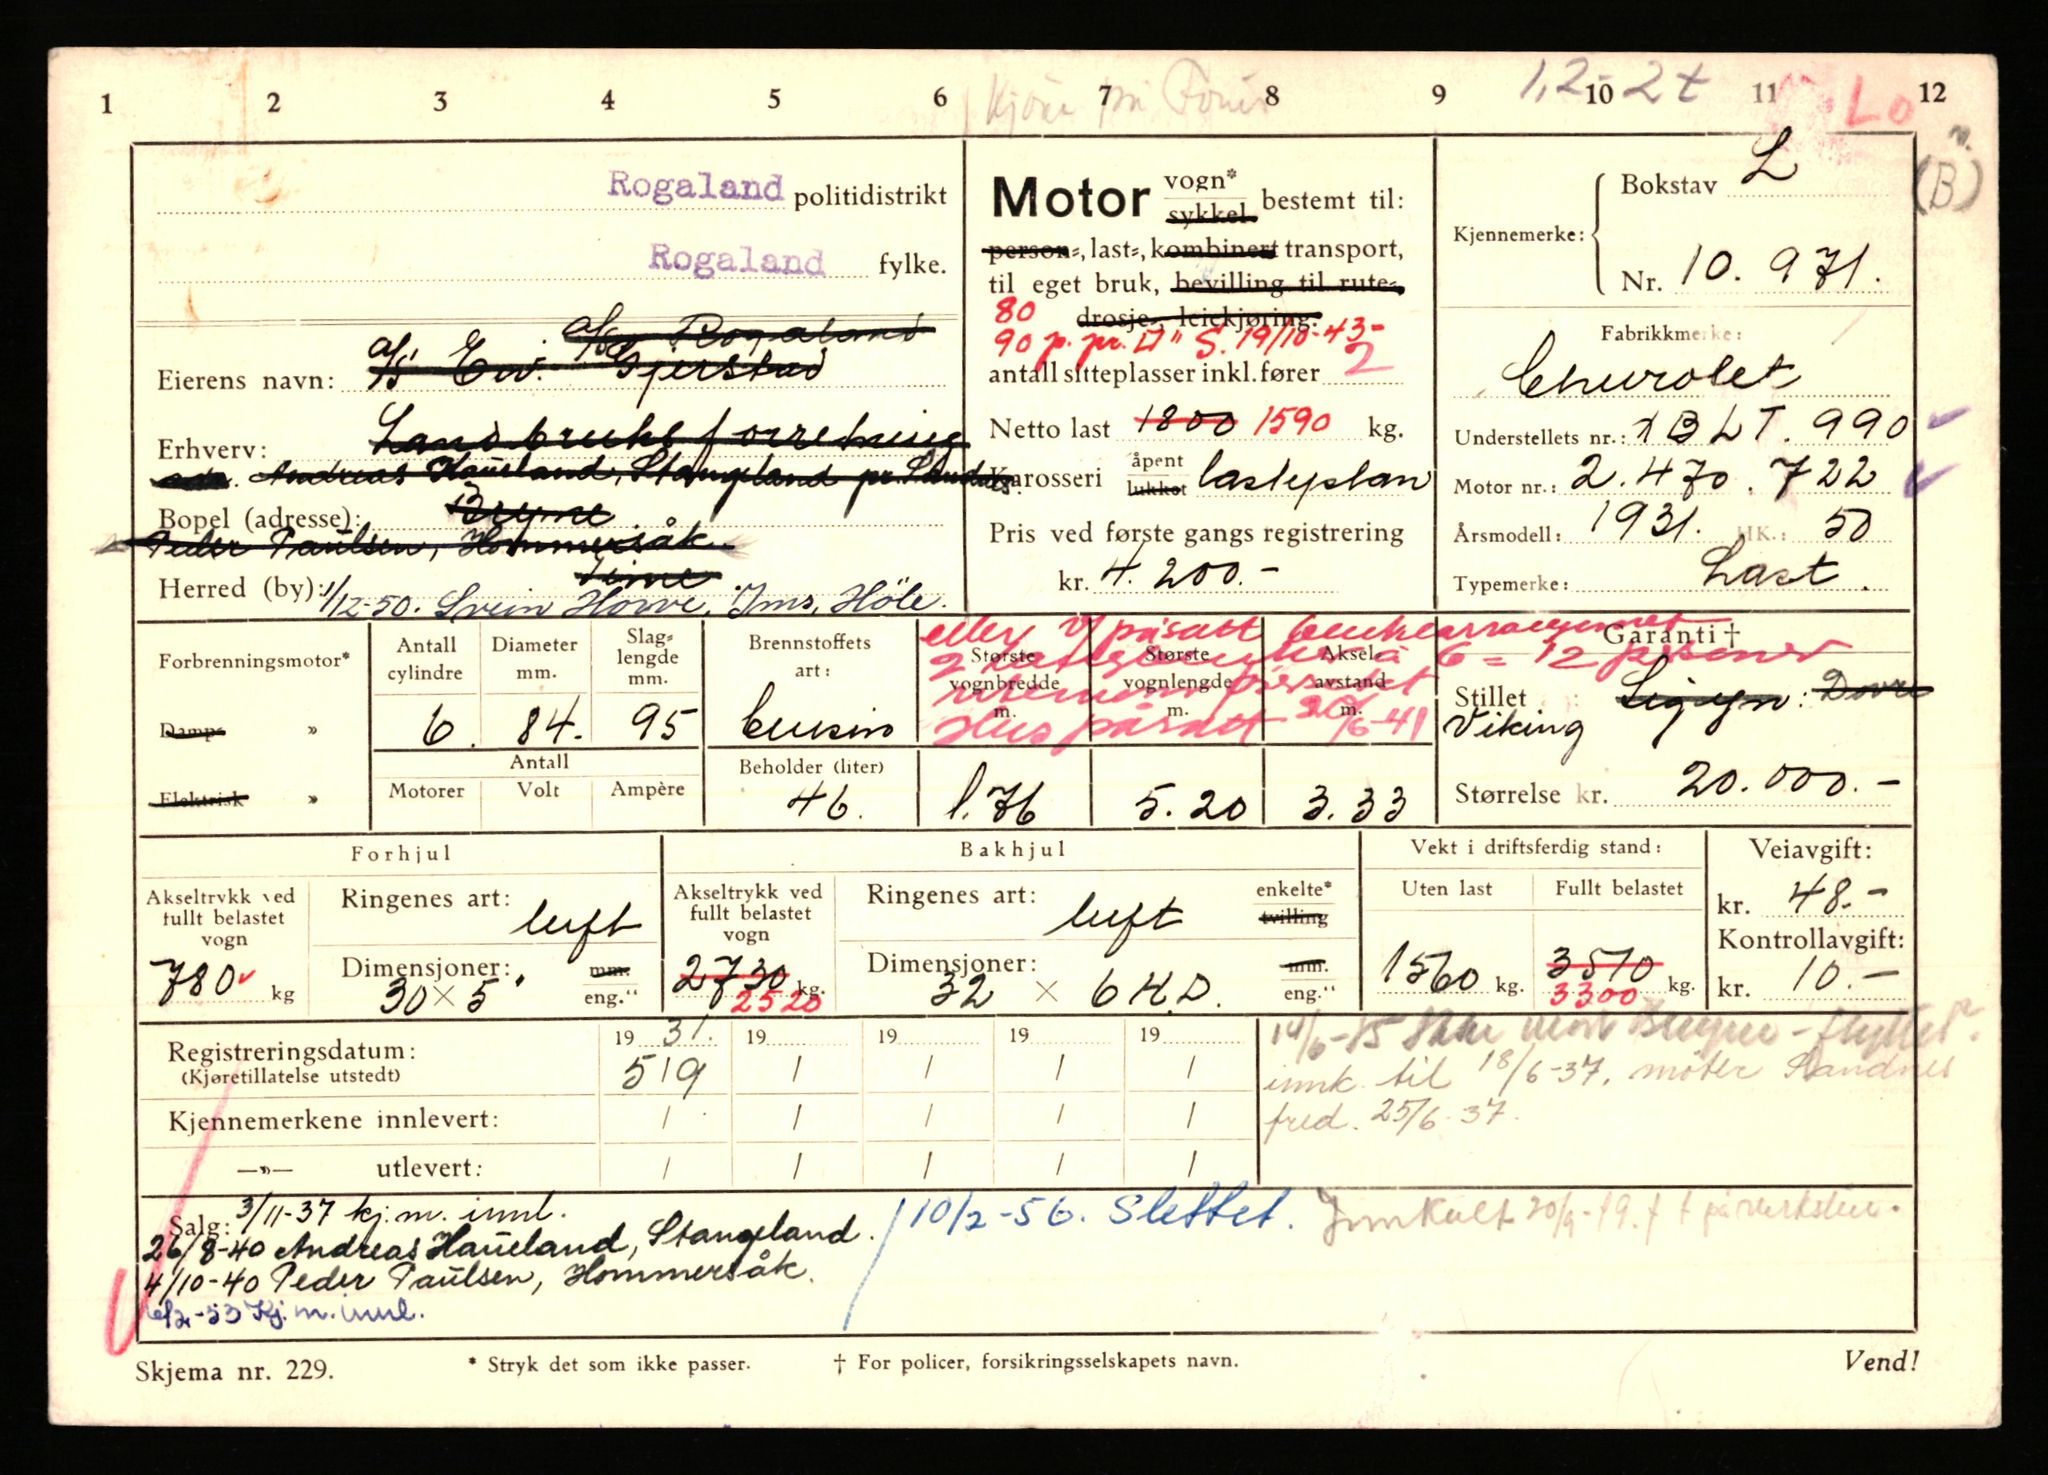 1 2 3 4 5 6 7 8 9 10 11 12
1,2-2t
Lo
(B)
Rogaland politidistrikt
Rogaland fylke.
a/s Rogaland
Eierens navn: a/s Eiv. Gjerstad
Erhverv: Landbruksforretning
Andreas Haueland, Stangeland pr. Sandnes.
Bopel (adresse): Bryne
Peder Paulsen, Hommersåk
Herred (by): Time
1/12-50. Svein Horve, Ims, Höle.
Motor vogn* sykkel bestemt til:
person-, last-, kombinert transport,
til eget bruk, bevilling til rute-,
80 drosje, leiekjøring.
90 p. pr. □" S. 19/10-43-
antall sitteplasser inkl. fører 2
Netto last 1800 1590 kg.
Karosseri åpent lukket lasteplan
Pris ved første gangs registrering
kr. 4.200.-
Kjennemerke: Bokstav L
Nr. 10.971.
Fabrikkmerke:
Chevrolet
Understellets nr.: 1BLT.990
Motor nr.: 2.470.722
Årsmodell: 1931. HK.: 50
Typemerke: Last.
eller v/ påsatt benkearrangement
6 = 12 personer
Hus påsatt 20/6-41
Forbrenningsmotor*
Damp- »
Elektrisk »
Antall cylindre
6.
Diameter mm.
84.
Slag-lengde mm.
95
Antall
Motorer Volt Ampère
Brennstoffets art:
bensin
Beholder (liter)
46.
Største vognbredde m.
1.76
Største vognlengde m.
5.20
Aksel-avstand m.
3.33
Garanti †
Stillet : Sigyn: Dovre
Viking
Størrelse kr. 20.000.-
Forhjul
Akseltrykk ved fullt belastet vogn
780 kg
Ringenes art: luft
Dimensjoner: 30 × 5" mm. eng."
Bakhjul
Akseltrykk ved fullt belastet vogn
2730 kg.
2520
Ringenes art: luft enkelte* tvilling
Dimensjoner: 32 × 6 H.D. mm. eng."
Vekt i driftsferdig stand:
Uten last Fullt belastet
1560 kg. 3570 kg.
3300
Veiavgift:
kr. 48.-
Kontrollavgift:
kr. 10.-
19 31. 19 19 19 19
Registreringsdatum: 5/9 / / / /
(Kjøretillatelse utstedt)
Kjennemerkene innlevert: / / / / /
—»— utlevert: / / / / /
innk. til 18/6-37. møter Sandnes
fred. 25/6-37.
Salg: 3/11-37 kj.m. innl.
26/8-40 Andreas Haueland, Stangeland.
4/10-40 Peder Paulsen, Hommersåk.
6/2-53 Kj.m. innl.
10/2-56. Slettet.
Skjema nr. 229.
* Stryk det som ikke passer.
† For policer, forsikringsselskapets navn.
Vend!